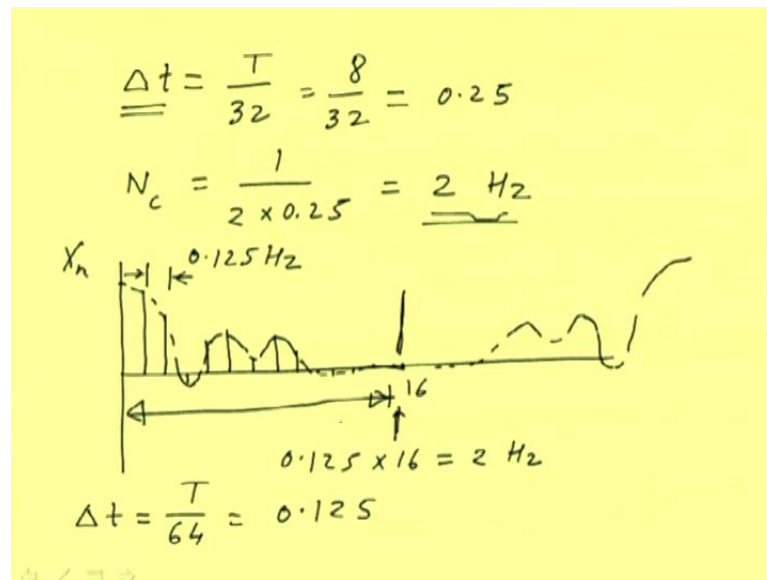 Δt = T/32 = 8/32 = 0.25
N_c = 1/(2 × 0.25) = 2 Hz
X_n
0.125 Hz
16
0.125 × 16 = 2 Hz
Δt = T/64 = 0.125